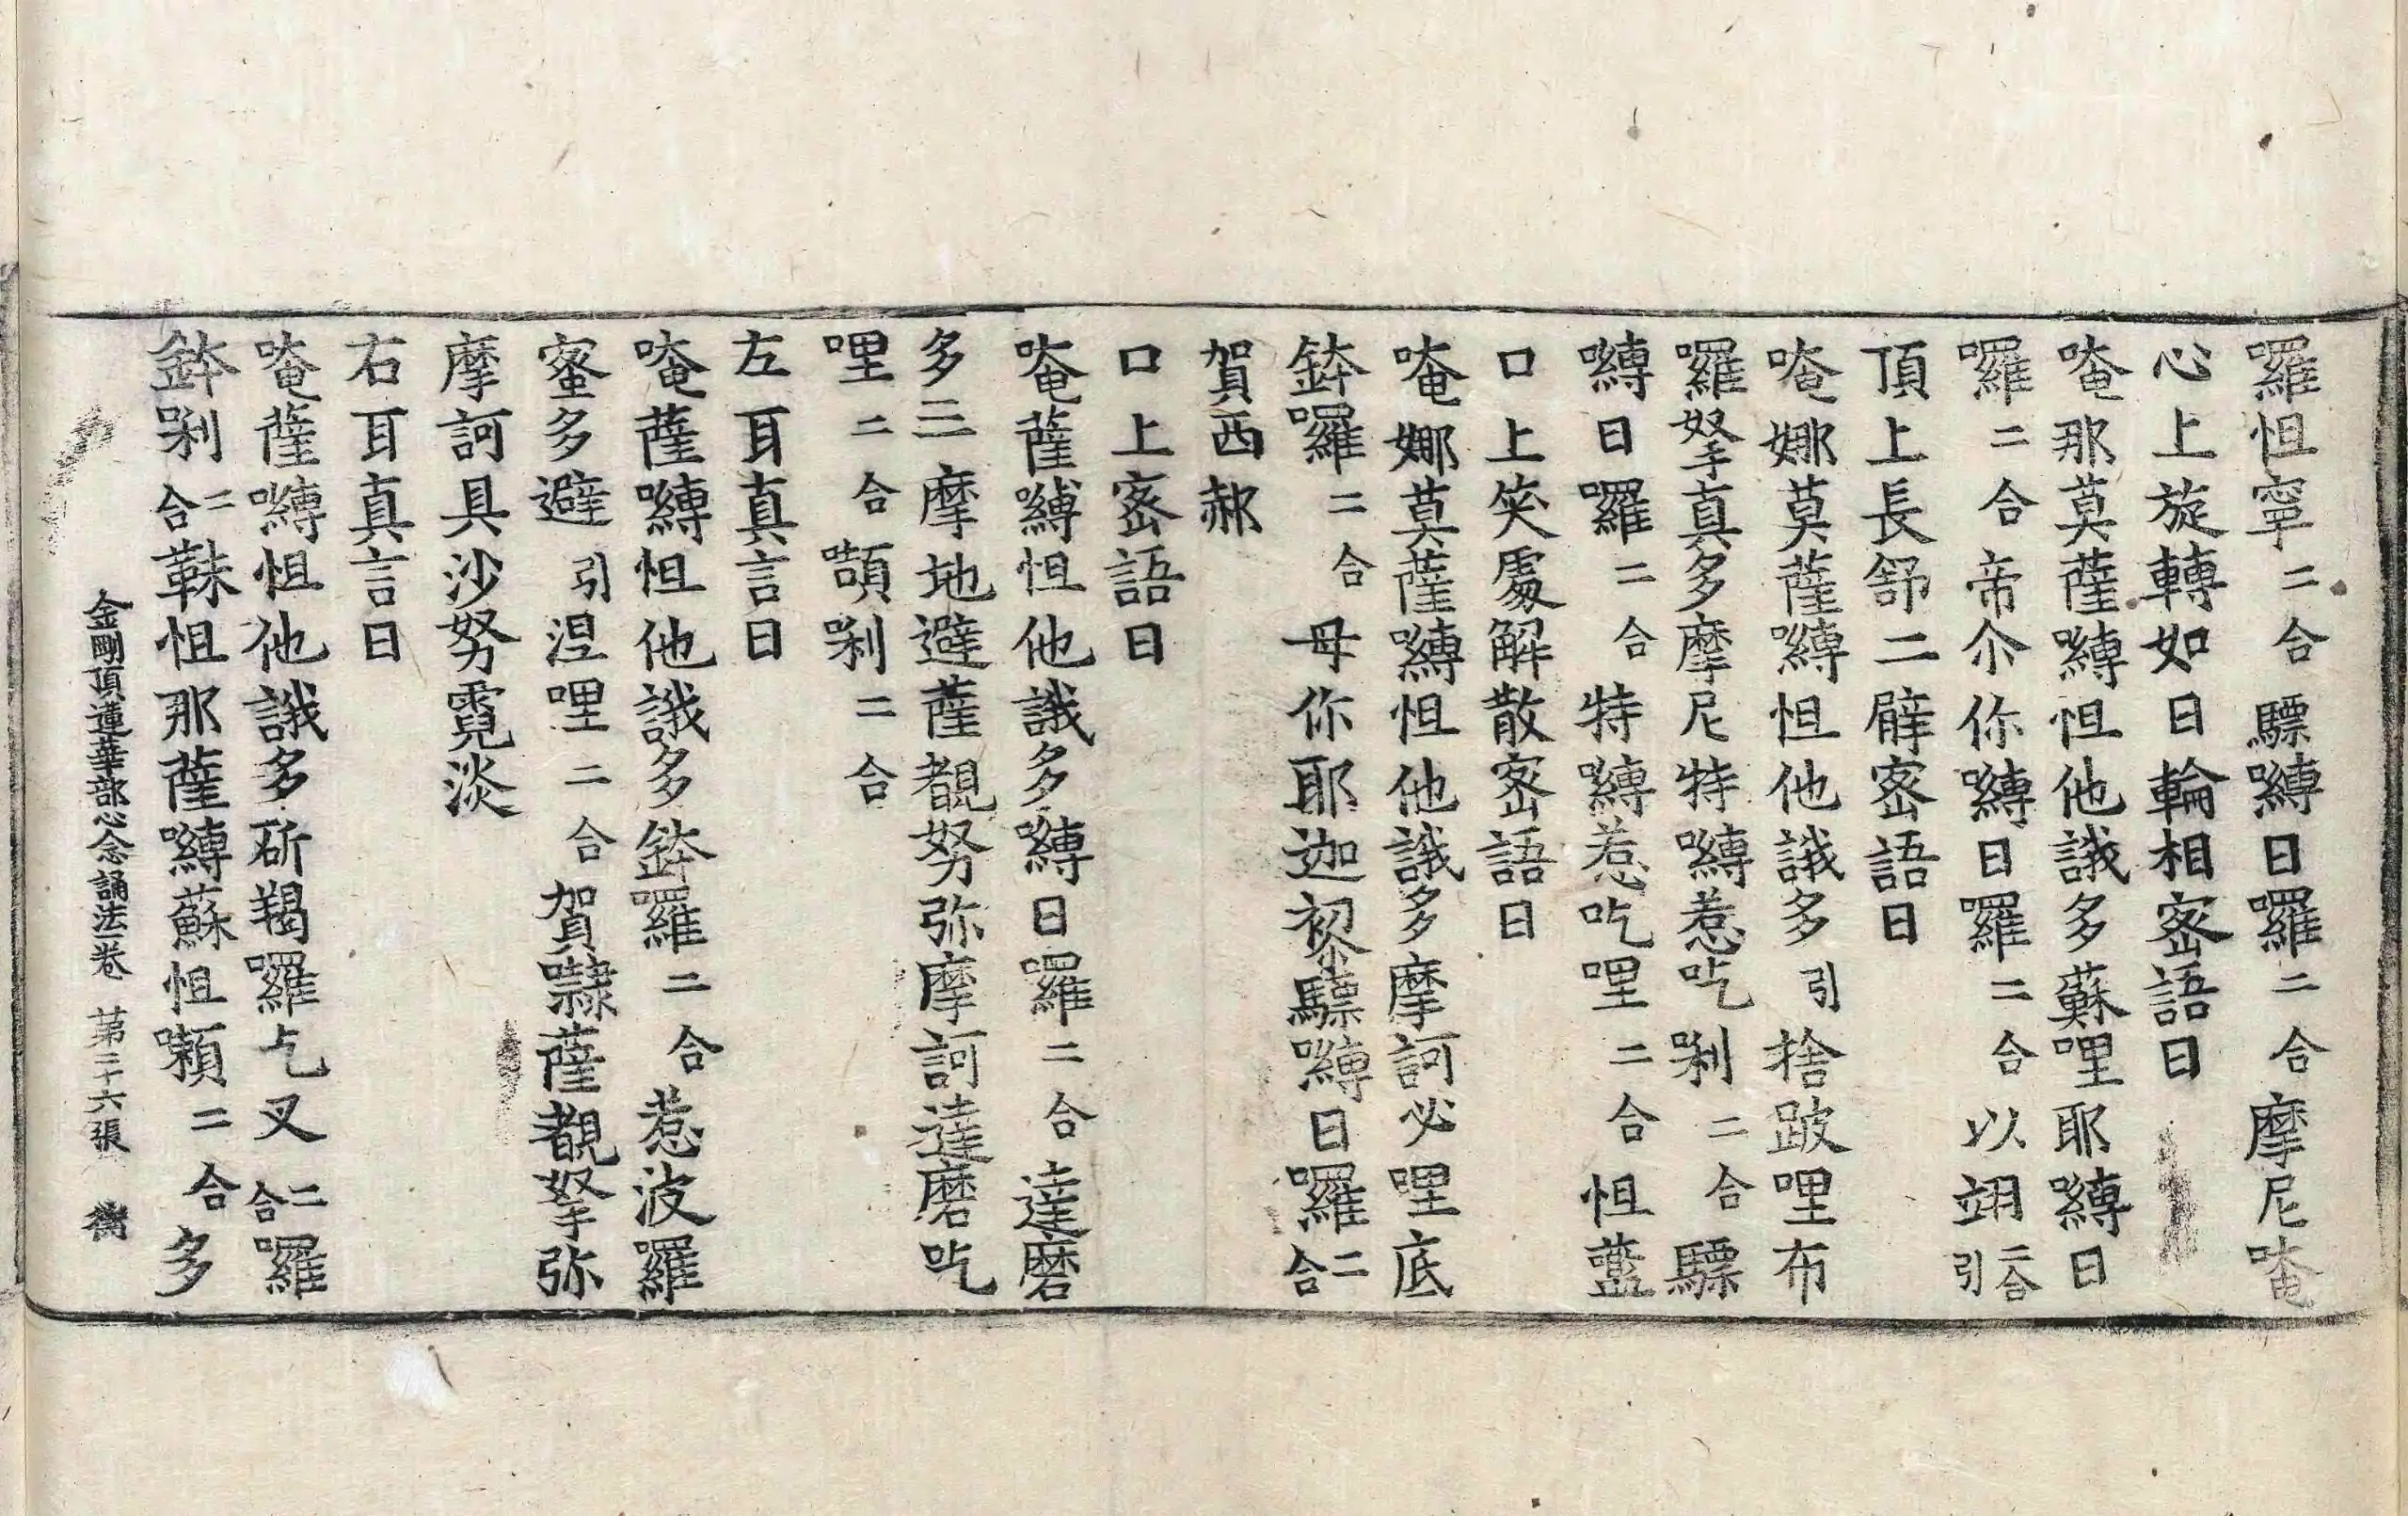 囉怛寧二合驃嚩日囉二合摩尼唵
心上旋轉如日輪相密語曰
唵那莫薩嚩怛他誐多蘇哩耶嚩日
囉二合帝尒你嚩日囉二合以翊二合引
頂上長舒二臂密語曰
唵娜莫薩嚩怛他誐多引捨跛哩布
囉拏真多摩尼特嚩惹吃剎二合驃
嚩日囉二合特嚩惹吃哩二合怛藍
口上笑處解散密語曰
唵娜莫薩嚩怛他誐多摩訶必哩底
鉢囉二合母你耶迦𥟖驃嚩日囉二合
賀西郝
口上密語曰
唵薩嚩怛他誐多嚩日囉二合達磨
多三摩地避薩覩努弥摩訶達磨吃
哩二合䫂剎二合
左耳真言曰
唵薩嚩怛他誐多鉢囉二合惹波羅
蜜多避引涅哩二合賀㘑薩覩拏弥
摩訶具沙努霓淡
右耳真言曰
唵薩嚩怛他誐多斫羯囉乞叉二合囉
鉢剎二合靺怛那薩嚩蘇怛嚬二合多
金剛頂蓮華部心念誦法一卷 第二十六張 衡